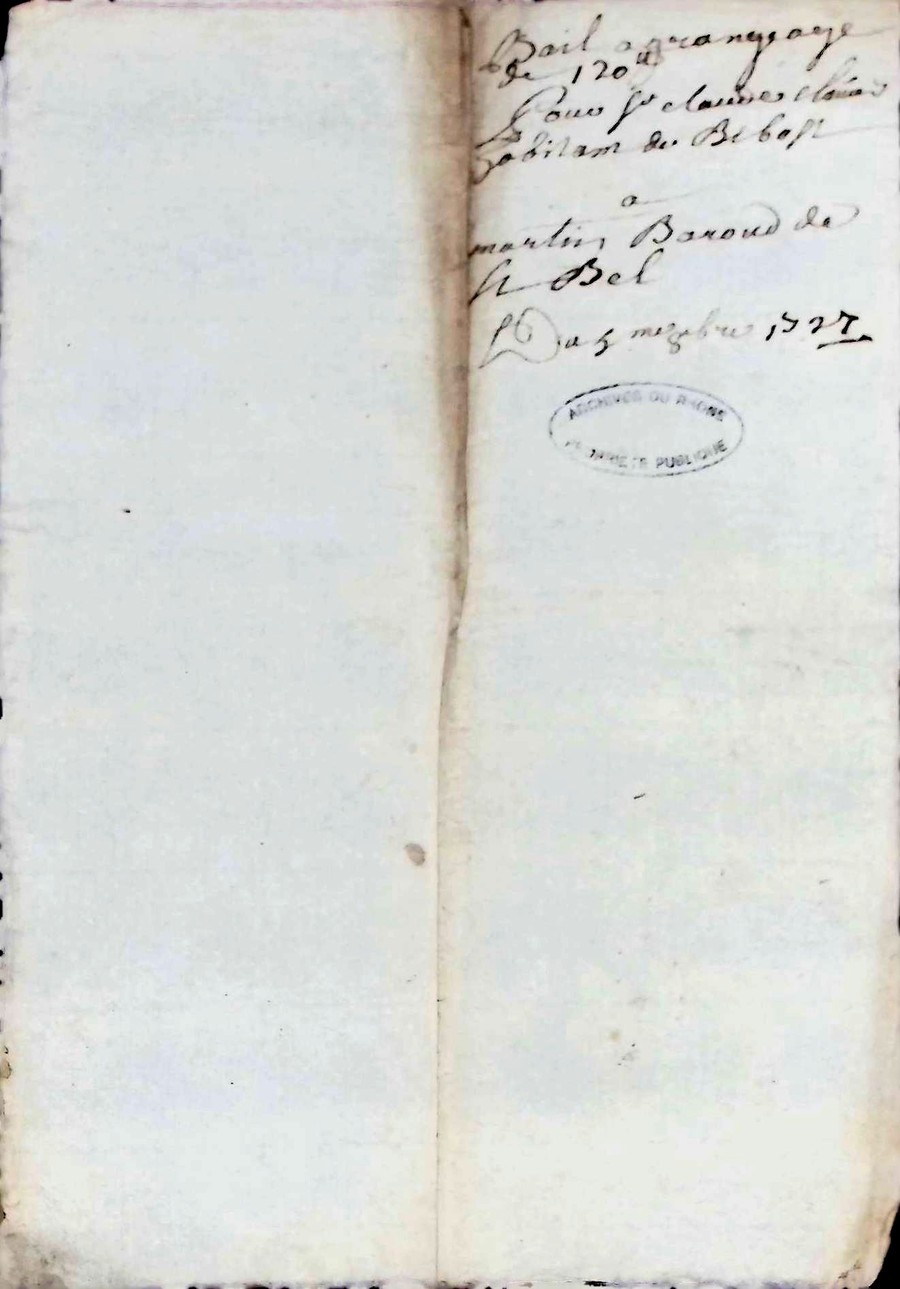 Bail a grangeage
de 120 ᵗᵗ
Pour Sr claude
habitant de Bibost
a
martin Baroud de
St Bel
Du 5 me 1727
ARCHIVES DU RHONE
PROPRIETE PUBLIQUE